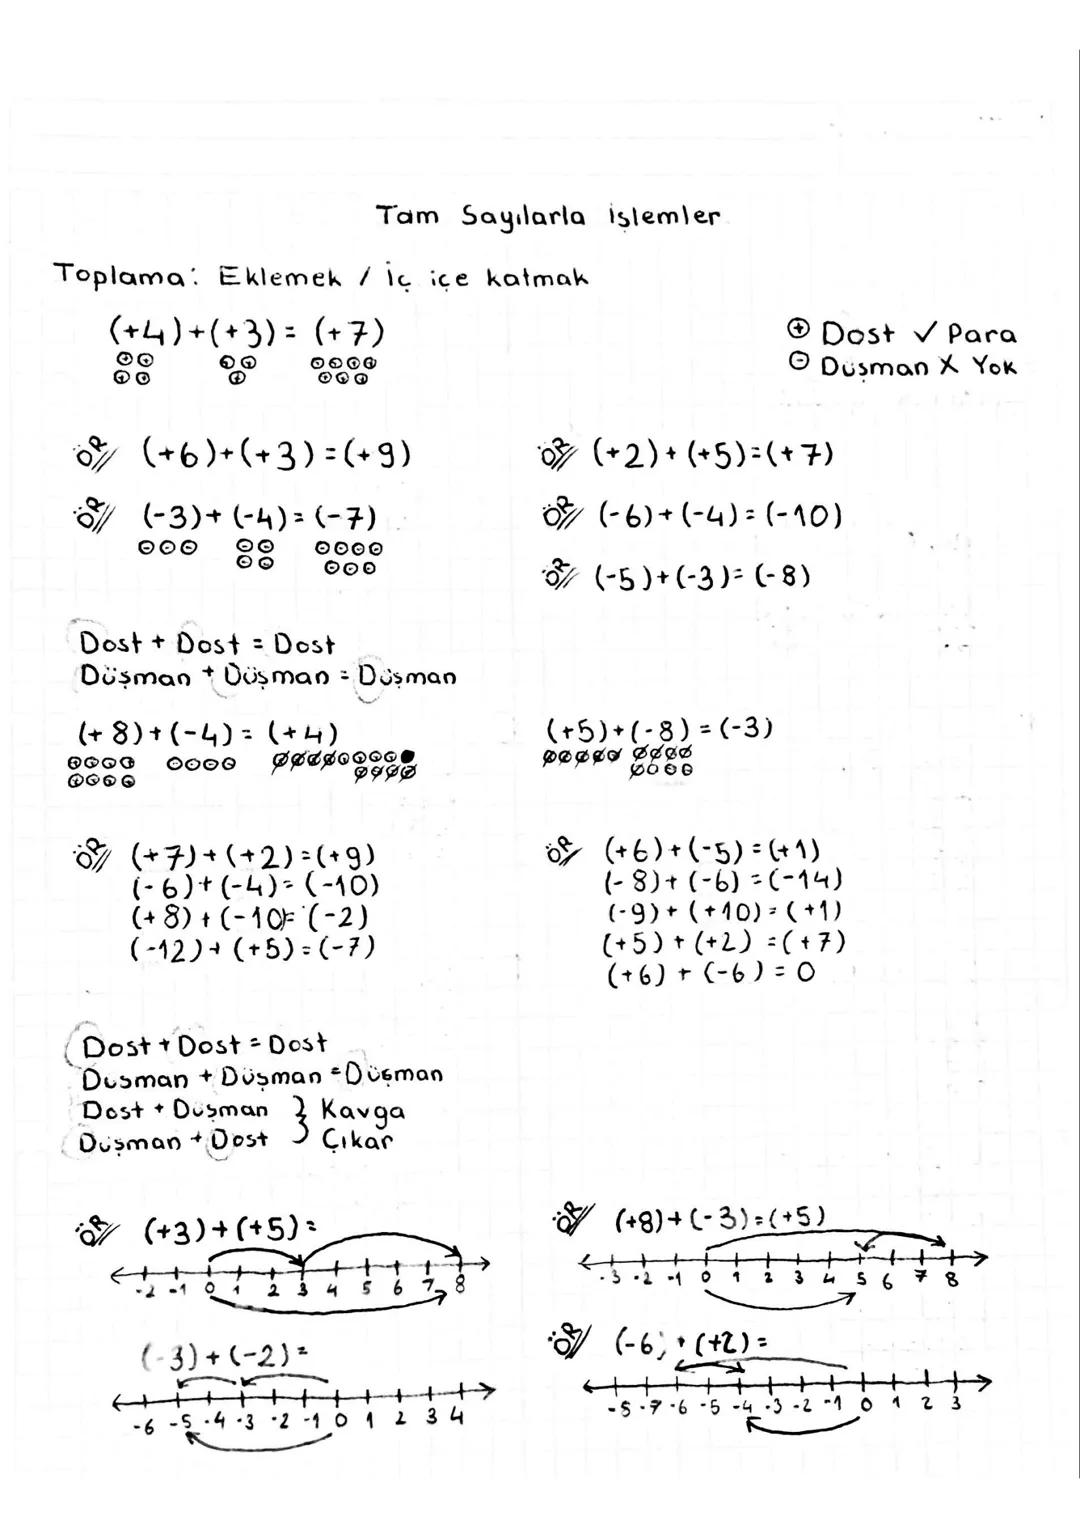 Tam Sayılarla işlemler
Toplama: Eklemek / İç içe katmak
(+4)+(+3)= (+7)
⊕ Dost ✓ Para
⊖ Düşman X Yok
ÖR// (+6)+(+3)=(+9)
ÖR// (+2)+(+5)=(+7)
ÖR// (-3)+(-4)=(-7)
ÖR// (-6)+(-4)=(-10)
ÖR// (-5)+(-3)=(-8)
Dost + Dost = Dost
Düşman + Düşman = Düşman
(+8)+(-4)= (+4)
(+5)+(-8)=(-3)
ÖR// (+7)+(+2)=(+9)
(-6)+(-4)=(-10)
(+8)+(-10)=(-2)
(-12)+(+5)=(-7)
ÖR// (+6)+(-5)=(+1)
(-8)+(-6)=(-14)
(-9)+(+10)=(+1)
(+5)+(+2)=(+7)
(+6)+(-6)=0
Dost + Dost = Dost
Dusman + Düşman = Düşman
Dost + Duşman } Kavga
Duşman + Dost } Çıkar
ÖR// (+3)+(+5)=
-2 -1 0 1 2 3 4 5 6 7 8
ÖR// (+8)+(-3)=(+5)
-3 -2 -1 0 1 2 3 4 5 6 7 8
(-3)+(-2)=
-6 -5 -4 -3 -2 -1 0 1 2 3 4
ÖR// (-6)+(+2)=
-8 -7 -6 -5 -4 -3 -2 -1 0 1 2 3